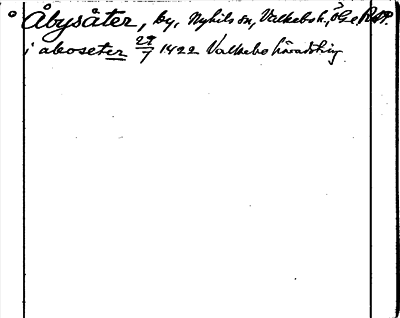 Åbysåter, by, Nykils sn, Valkebo h, ÖGe, RAP.
i aboseter 29/7 1422 Valkebo häradsting